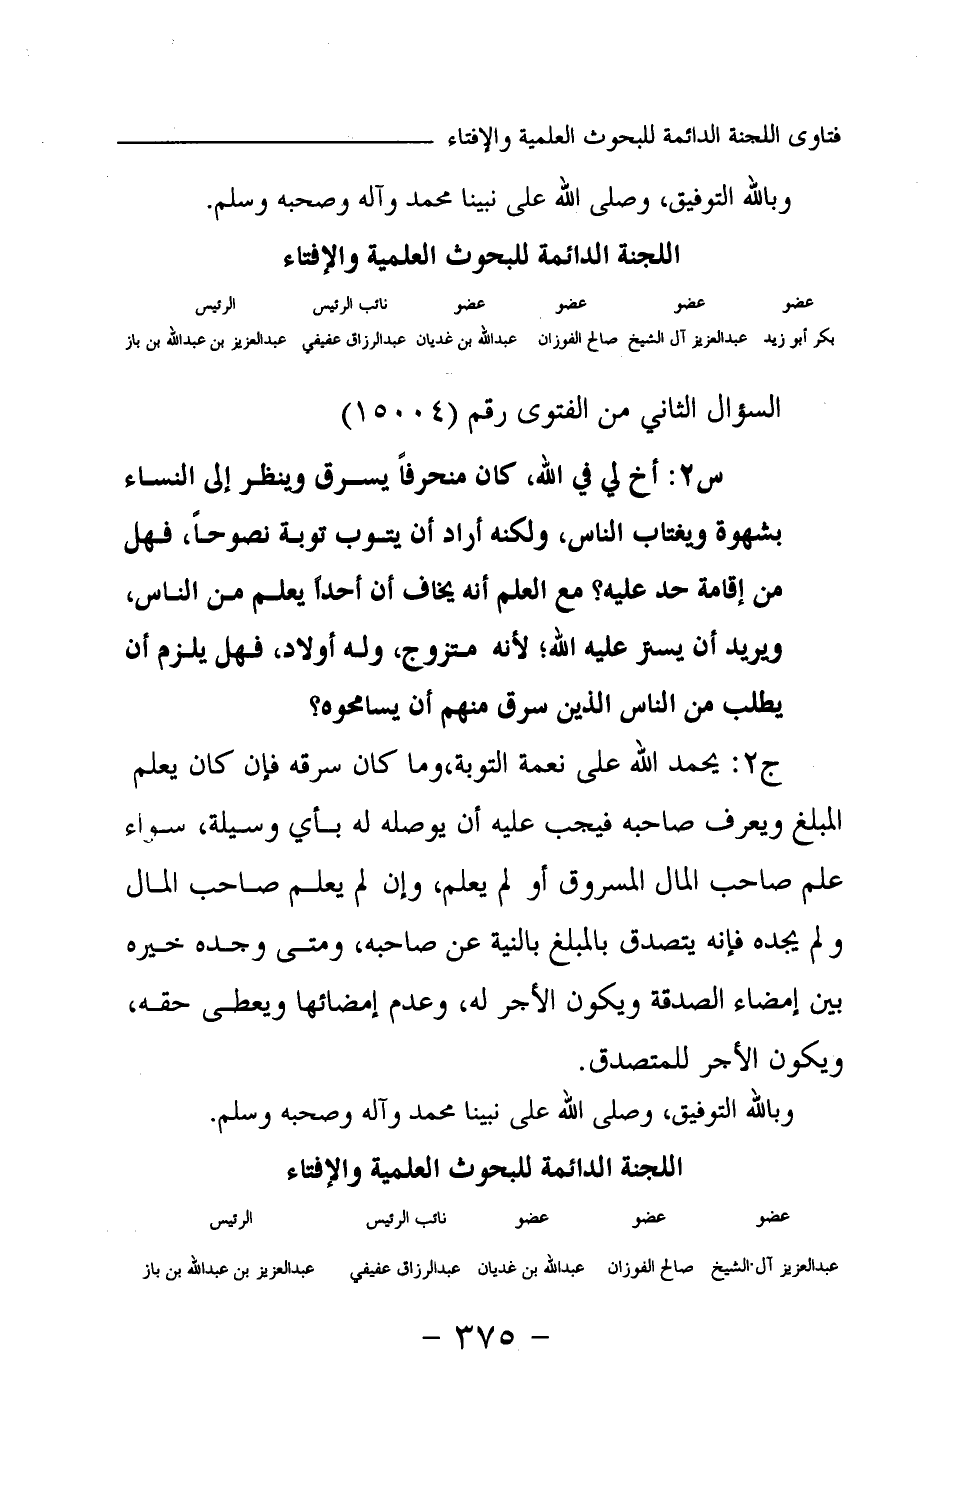 فتاوى اللجنة الدائمة للبحوث العلمية والإفتاء
وبالله التوفيق، وصلى الله على نبينا محمد وآله وصحبه وسلم.
اللجنة الدائمة للبحوث العلمية والإفتاء
عضو عضو عضو عضو نائب الرئيس الرئيس
بكر أبو زيد عبدالعزيز آل الشيخ صالح الفوزان عبدالله بن غديان عبدالرزاق عفيفي عبدالعزيز بن عبدالله بن باز
السؤال الثاني من الفتوى رقم (١٥٠٠٤)
س٢: أخ لي في الله، كان منحرفاً يسرق وينظر إلى النساء
بشهوة ويغتاب الناس، ولكنه أراد أن يتوب توبة نصوحاً، فهل
من إقامة حد عليه؟ مع العلم أنه يخاف أن أحداً يعلم من الناس،
ويريد أن يستر عليه الله؛ لأنه متزوج، وله أولاد، فهل يلزم أن
يطلب من الناس الذين سرق منهم أن يسامحوه؟
ج٢: يحمد الله على نعمة التوبة،وما كان سرقه فإن كان يعلم
المبلغ ويعرف صاحبه فيجب عليه أن يوصله له بأي وسيلة، سواء
علم صاحب المال المسروق أو لم يعلم، وإن لم يعلم صاحب المال
ولم يجده فإنه يتصدق بالمبلغ بالنية عن صاحبه، ومتى وجده خيره
بين إمضاء الصدقة ويكون الأجر له، وعدم إمضائها ويعطى حقه،
ويكون الأجر للمتصدق.
وبالله التوفيق، وصلى الله على نبينا محمد وآله وصحبه وسلم.
اللجنة الدائمة للبحوث العلمية والإفتاء
عضو عضو عضو نائب الرئيس الرئيس
عبدالعزيز آل الشيخ صالح الفوزان عبدالله بن غديان عبدالرزاق عفيفي عبدالعزيز بن عبدالله بن باز
- ٣٧٥ -